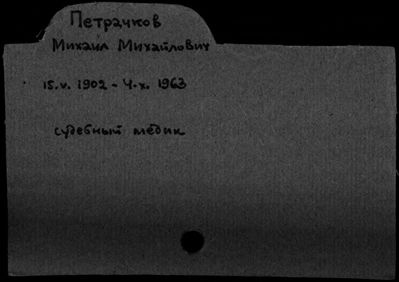 Петрачков
Михаил Михайлович
15.V. 1902 - 4.X. 1963
судебный медик